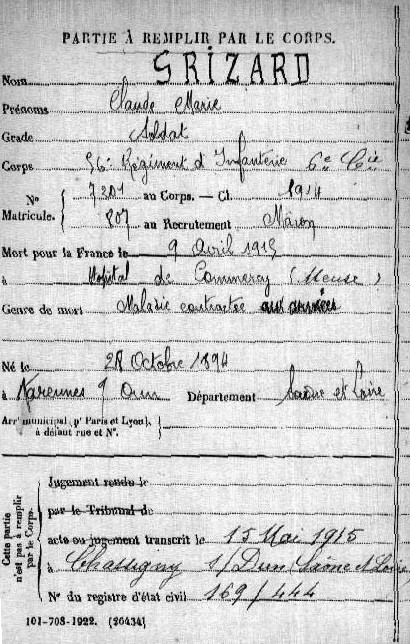 PARTIE À REMPLIR PAR LE CORPS.
Nom GRIZARD
Prénoms Claude Marie
Grade Soldat
Corps 56e Régiment d'Infanterie 6e Cie
N° Matricule. 7201 au Corps. — Cl. 1914
807 au Recrutement Mâcon
Mort pour la France le 9 Avril 1915
à Hôpital de Commercy (Meuse)
Genre de mort Maladie contractée aux armées
Né le 28 Octobre 1894
à Varennes s/ Dun Département Saône et Loire
Arr' municipal (p' Paris et Lyon), à défaut rue et N°.
Cette partie n'est pas à remplir par le Corps.
Jugement rendu le
par le Tribunal de
acte ou jugement transcrit le 15 Mai 1915
à Chassigny s/ Dun Saône et Loire
N° du registre d'état civil 169/444
101-708-1922. (26434)